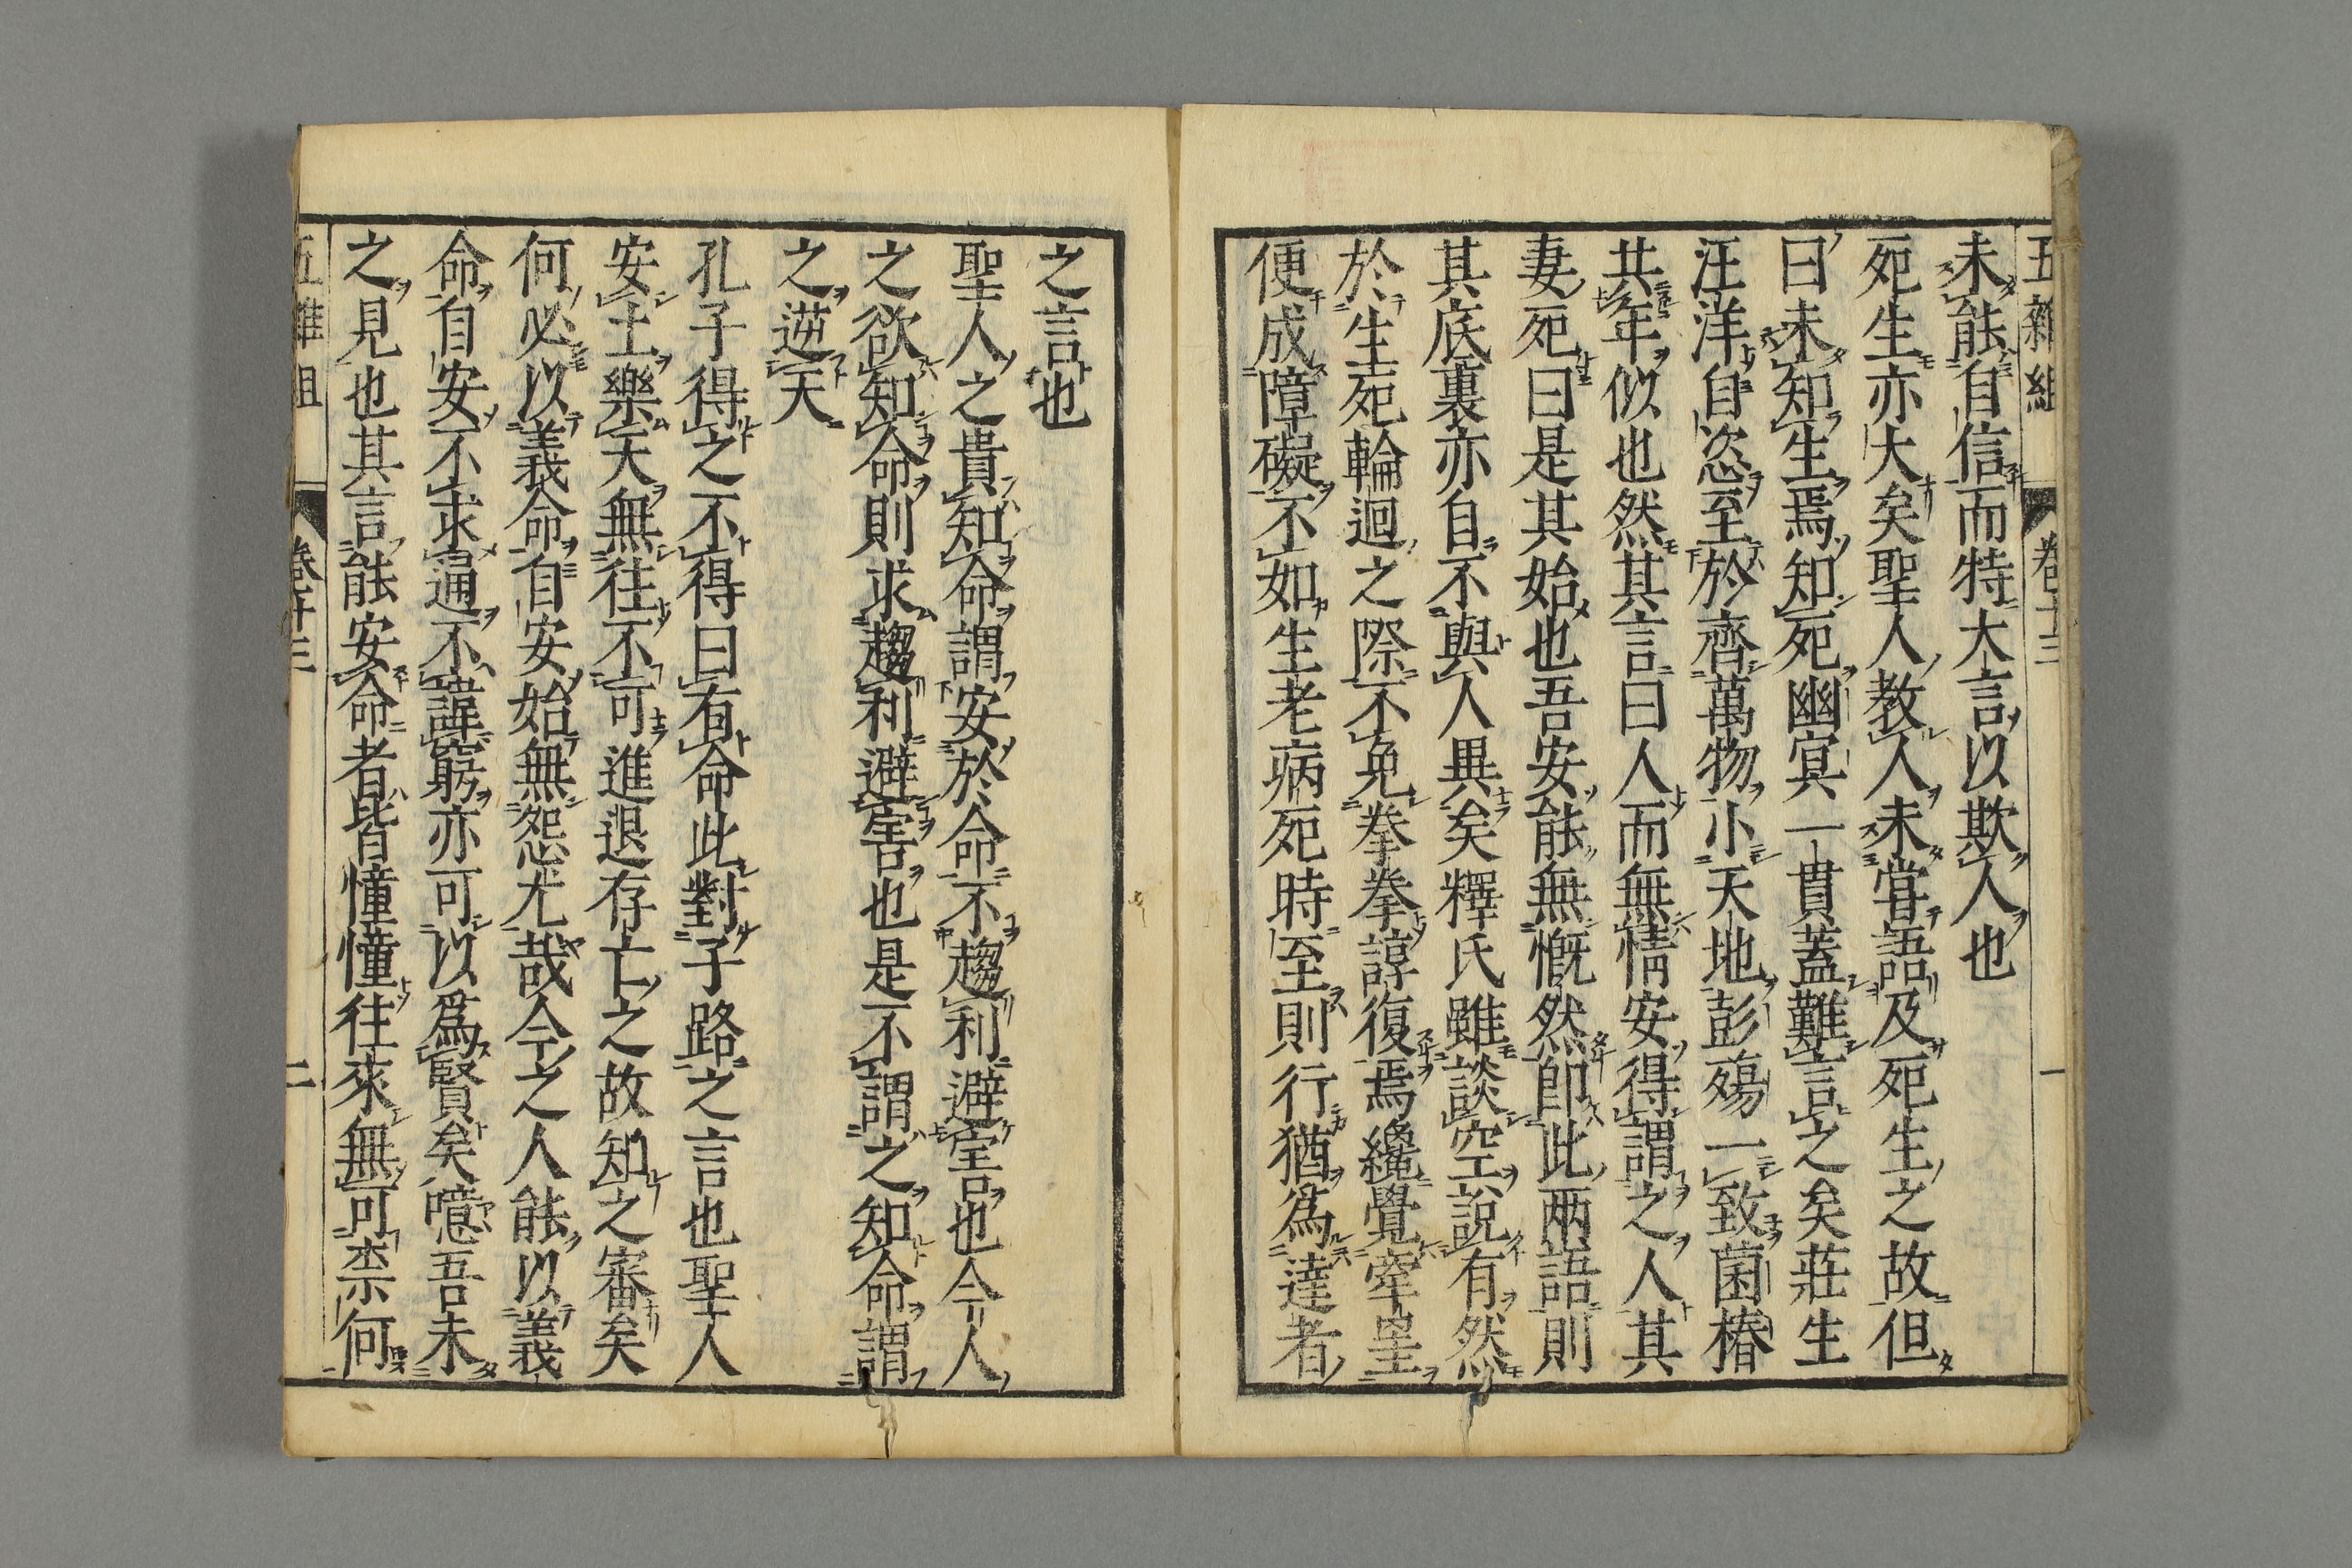 五雜組 卷十三 一
未能自信而特大言以欺人也
死生亦大矣聖人教人未嘗語及死生之故但
曰未知生焉知死幽冥一貫蓋難言之矣莊生
汪洋自恣至於齊萬物小天地彭殤一致菌椿
共年似也然其言曰人而無情安得謂之人其
妻死曰是其始也吾安能無慨然卽此兩語則
其底裏亦自不與人異矣釋氏雖談空說有然
於生死輪迴之際不免拳拳諄復焉纔覺牽罣
便成障礙不如生老病死時至則行猶爲達者
之言也
聖人之貴知命謂安於命不趨利避害也今人
之欲知命則求趨利避害也是不謂之知命謂
之逆天
孔子得之不得曰有命此對子路之言也聖人
安土樂天無往不可進退存亡之故知之審矣
何必以義命自安始無怨尤哉今之人能以義
命自安不求通不諱窮亦可以爲賢矣噫吾未
之見也其言能安命者皆憧憧往來無可柰何
五雜組 卷十三 二